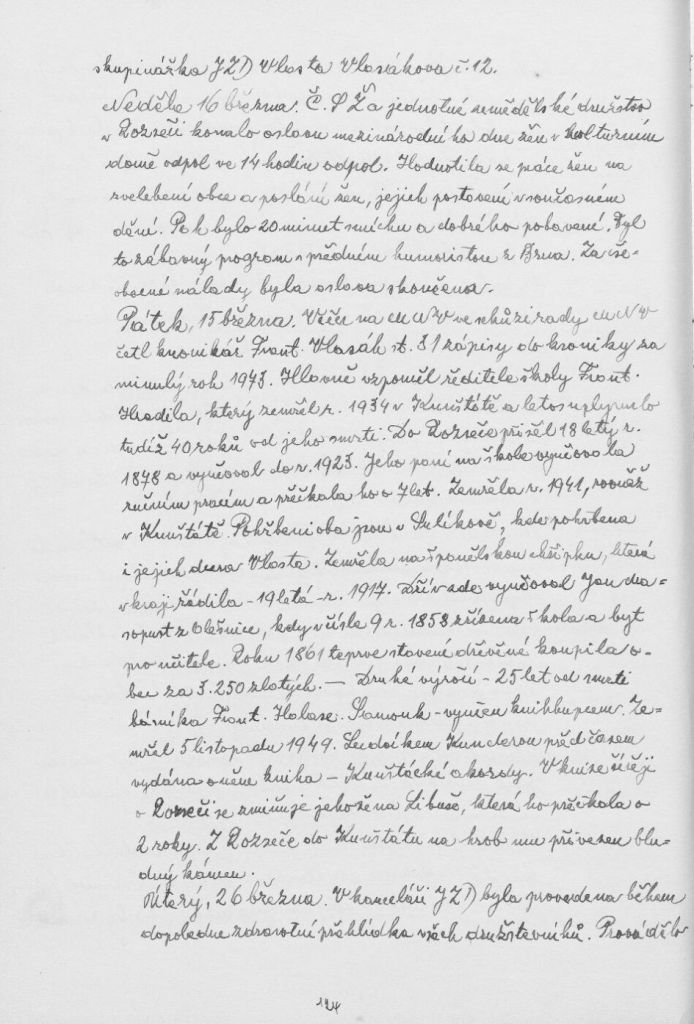 skupinářka JZD Vlasta Vlasáková č. 12.
Neděle 16 března. Č.S Ž a jednotné zemědělské družstvo
v Rozseči konalo oslavu mezinárodního dne žen v kulturním
domě odpol ve 14 hodin odpol. Hodnotila se práce žen na
zvelebení obce a poslání žen, jejich postavení v současném
dění. Pak bylo 20 minut smíchu a dobrého pobavení. Byl
to zábavný program s předním humoristou z Brna. Za vše-
obecné nálady byla oslava skončena.
Pátek, 15 března. Večer na MNV ve schůzi rady MNV
četl kronikář Frant. Vlasák st. 31 zápisy do kroniky za
minulý rok 1973. Hlavně vzpoměl ředitele školy Frant.
Hradila, který zemřel r. 1934 v Kunštátě a letos uplynulo
tudíž 40 roků od jeho smrti. Do Rozseče přišel 18 letý r.
1878 a vyučoval do r. 1923. Jeho paní na škole vyučovala
ručním pracím a přečkala ho o 7 let. Zemřela r. 1941, rovněž
v Kunštátě. Pohřbeni oba jsou v Sulíkově, kde pohřbena
i jejich dcera Vlasta. Zemřela na španělskou chřipku, která
v kraji řádila - 19 letá - r. 1917. Dříve zde vyučoval Jan Ma=
sopust z Olešnice, kdy v čísle 9 r. 1858 zřízena škola a byt
pro učitele. Roku 1861 teprve stavení dřevěné koupila o-
bec za 3.250 zlatých. — Druhé výročí - 25 let od smrti
básníka Frant. Halase. Samouk - vyučen knihkupcem. Ze-
mřel 5 listopadu 1949. Ludvíkem Kunderou před časem
vydána o něm kniha - Kunštátské akordy. V knize
o Rozseči se zmiňuje jeho žena Libuše, která ho přečkala o
2 roky. Z Rozseče do Kunštátu na hrob mu přivezen blu-
dný kámen.
Úterý, 26 března. V kanceláři JZD byla provedena během
dopoledne zdravotní prohlídka všech družstevníků. Provádělo
124